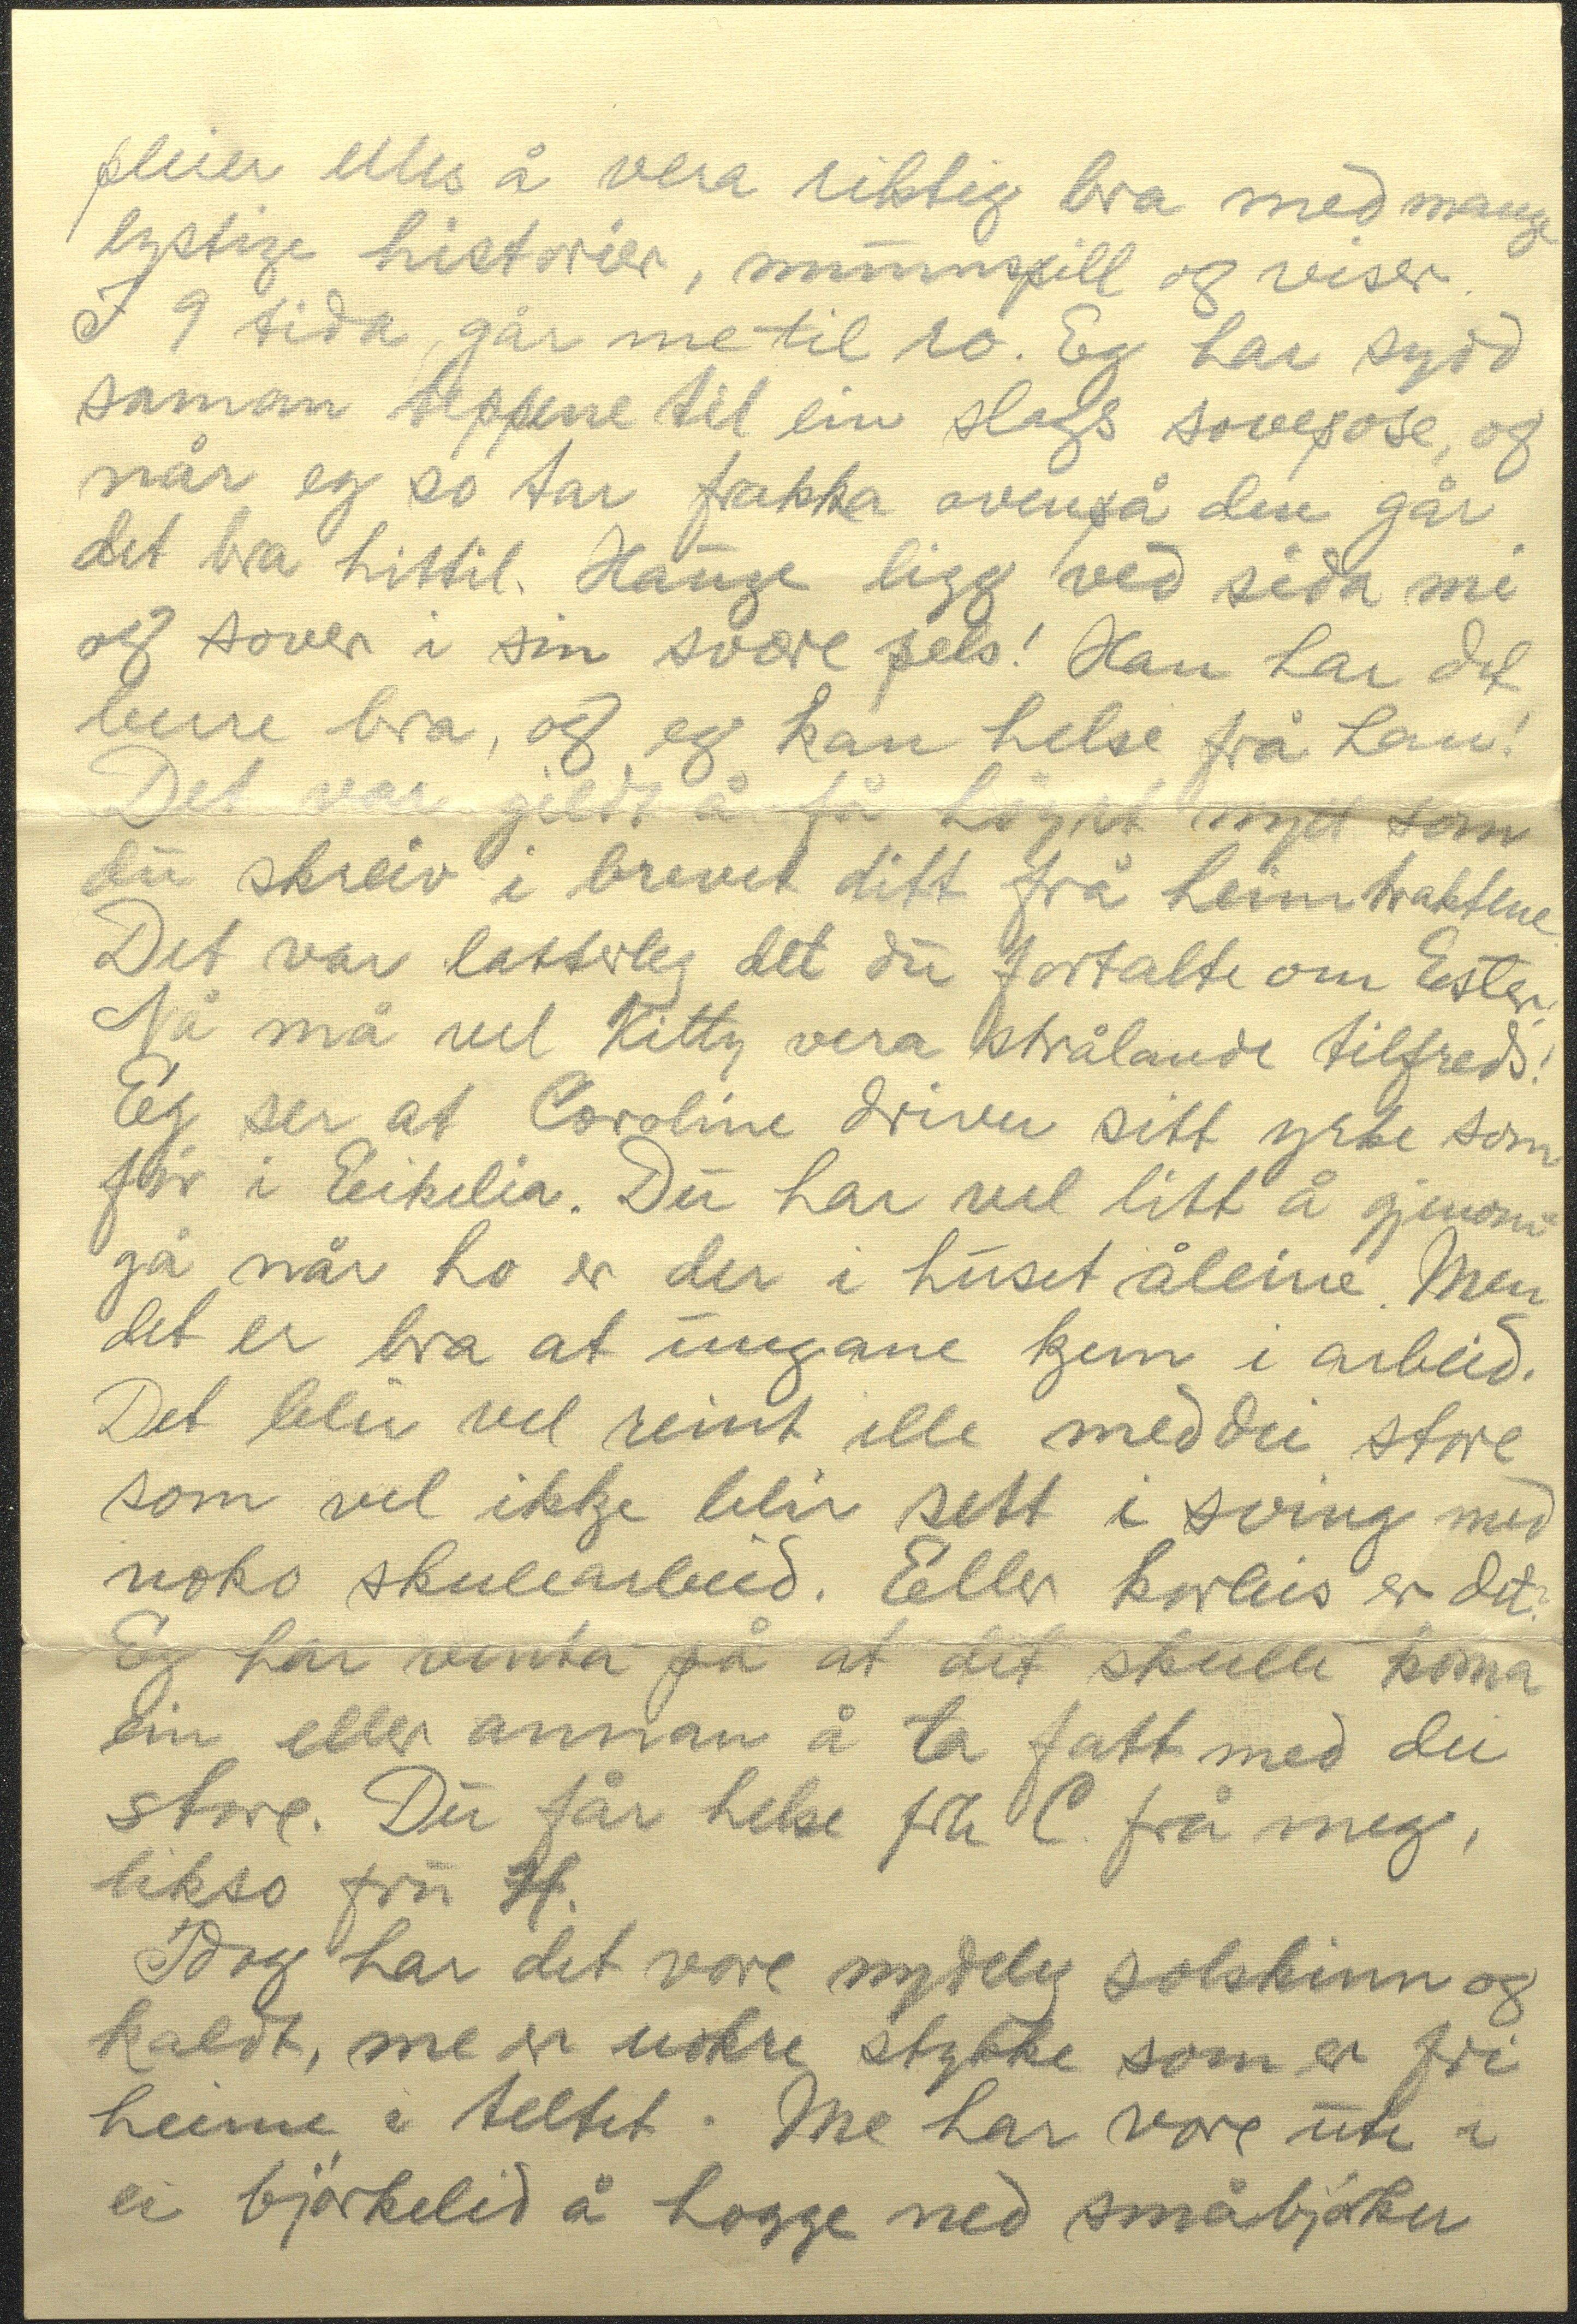 pleier elles å vera riktig bra med mange
lystige historier, munnspill og viser.
I 9 tida går me til ro. Eg har sydd
saman teppene til ein slags sovepose, og
når eg so tar frakka ovenpå den går
det bra hittil. Hauge ligg ved sida mi
og sover i sin svære pels! Han har det
berre bra, og eg kan helse frå han!
Det var gildt å få høyrt nytt som
du skreiv i brevet ditt frå heimtraktene.
Det var latterleg det du fortalte om Ester!
Nå må vel Kitty vera strålande tilfreds!
Eg ser at Caroline driver sitt yrke som
før i Eikelia. Du har vel litt å gjenom-
gå når ho er der i huset åleine. Men
det er bra at ungane kjem i arbeid.
Det blir vel reint ille med dei store
som vel ikkje blir sett i sving med
noko skulearbeid. Eller korleis er det?
Eg har venta på at det skulle koma
ein eller annan å ta fatt med dei
store. Du får helse frk C. frå meg,
likso fru H.
Idag har det vore nydeleg solskinn og
kaldt, me er nokre stykke som er fri
heime i teltet. Me har vore ute i
ei bjørkelid å hogge ned småbjørker